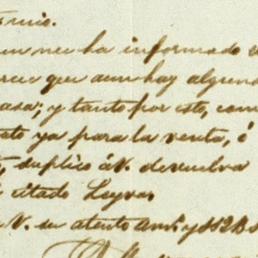 mio.
me ha informado
que aun hay alguna
casa; y tanto por esto, como
ya para la venta, ó
suplico á V. devuelva
citado Leyva
V. su atento am.º y SS 2B